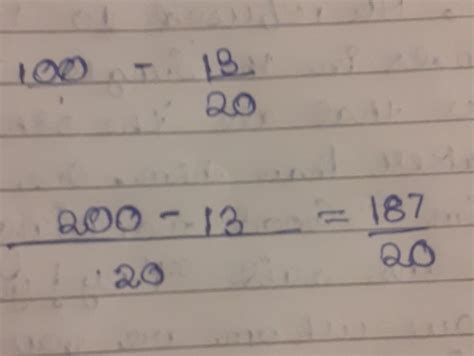 100 - 13/20
200 - 13/20 = 187/20